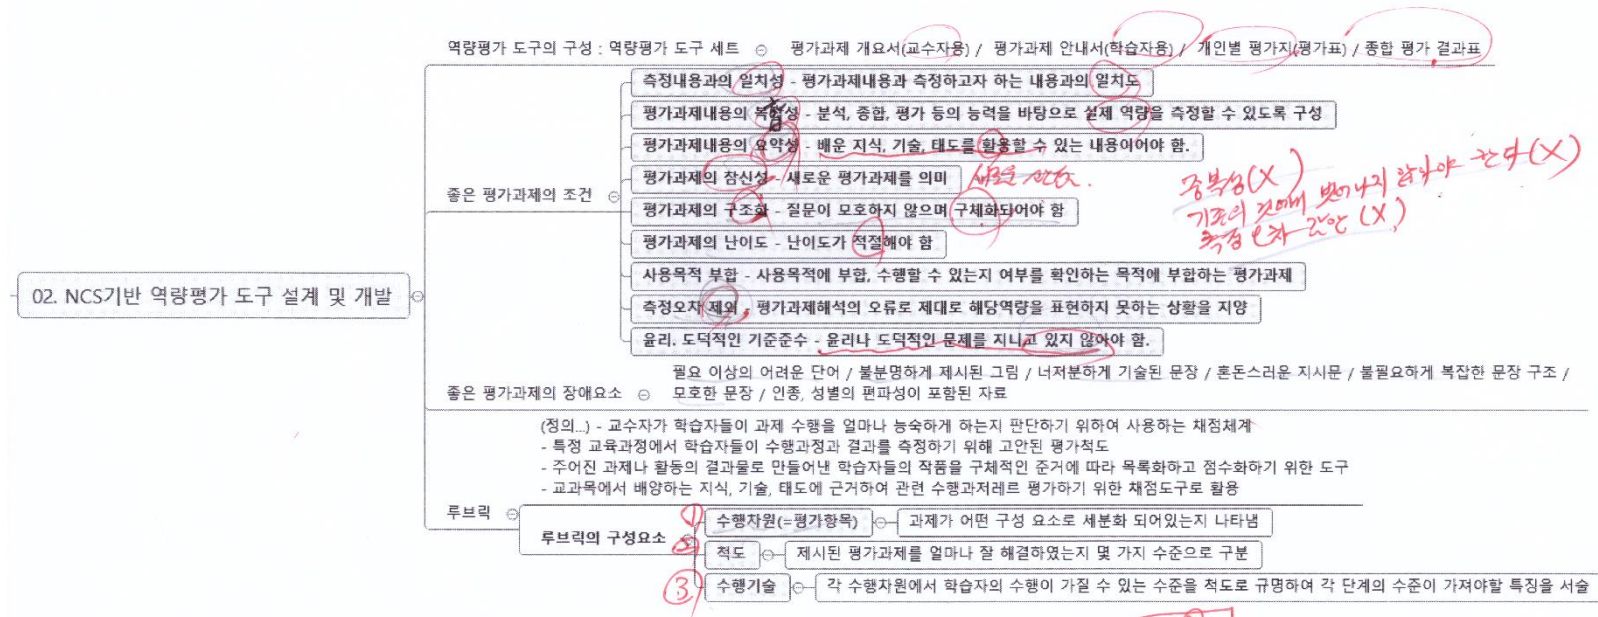 역량평가 도구의 구성 : 역량평가 도구 세트 평가과제 개요서(교수자용) / 평가과제 안내서(학습자용) / 개인별 평가지(평가표) / 종합 평가 결과표
측정내용과의 일치성 - 평가과제내용과 측정하고자 하는 내용과의 일치도
평가과제내용의 복합성 - 분석, 종합, 평가 등의 능력을 바탕으로 실제 역량을 측정할 수 있도록 구성
평가과제내용의 요약성 - 배운 지식, 기술, 태도를 활용할 수 있는 내용이어야 함.
좋은 평가과제의 조건
평가과제의 참신성 - 새로운 평가과제를 의미
중복성(X)
기존의 것에서 벗어나지 않아야 한다(X)
측정 오차 (X)
평가과제의 구조화 - 질문이 모호하지 않으며 구체화되어야 함
평가과제의 난이도 - 난이도가 적절해야 함
사용목적 부합 - 사용목적에 부합, 수행할 수 있는지 여부를 확인하는 목적에 부합하는 평가과제
02. NCS기반 역량평가 도구 설계 및 개발
측정오차 제외, 평가과제해석의 오류로 제대로 해당역량을 표현하지 못하는 상황을 지양
윤리, 도덕적인 기준준수 - 윤리나 도덕적인 문제를 지니고 있지 않아야 함.
좋은 평가과제의 장애요소
필요 이상의 어려운 단어 / 불분명하게 제시된 그림 / 너저분하게 기술된 문장 / 혼돈스러운 지시문 / 불필요하게 복잡한 문장 구조 /
모호한 문장 / 인종, 성별의 편파성이 포함된 자료
(정의...) - 교수자가 학습자들이 과제 수행을 얼마나 능숙하게 하는지 판단하기 위하여 사용하는 채점체계
- 특정 교육과정에서 학습자들이 수행과정과 결과를 측정하기 위해 고안된 평가척도
- 주어진 과제나 활동의 결과물로 만들어낸 학습자들의 작품을 구체적인 준거에 따라 목록화하고 점수화하기 위한 도구
- 교과목에서 배양하는 지식, 기술, 태도에 근거하여 관련 수행과저레르 평가하기 위한 채점도구로 활용
루브릭
루브릭의 구성요소
① 수행차원(=평가항목) 과제가 어떤 구성 요소로 세분화 되어있는지 나타냄
② 척도 제시된 평가과제를 얼마나 잘 해결하였는지 몇 가지 수준으로 구분
③ 수행기술 각 수행차원에서 학습자의 수행이 가질 수 있는 수준을 척도로 규명하여 각 단계의 수준이 가져야할 특징을 서술